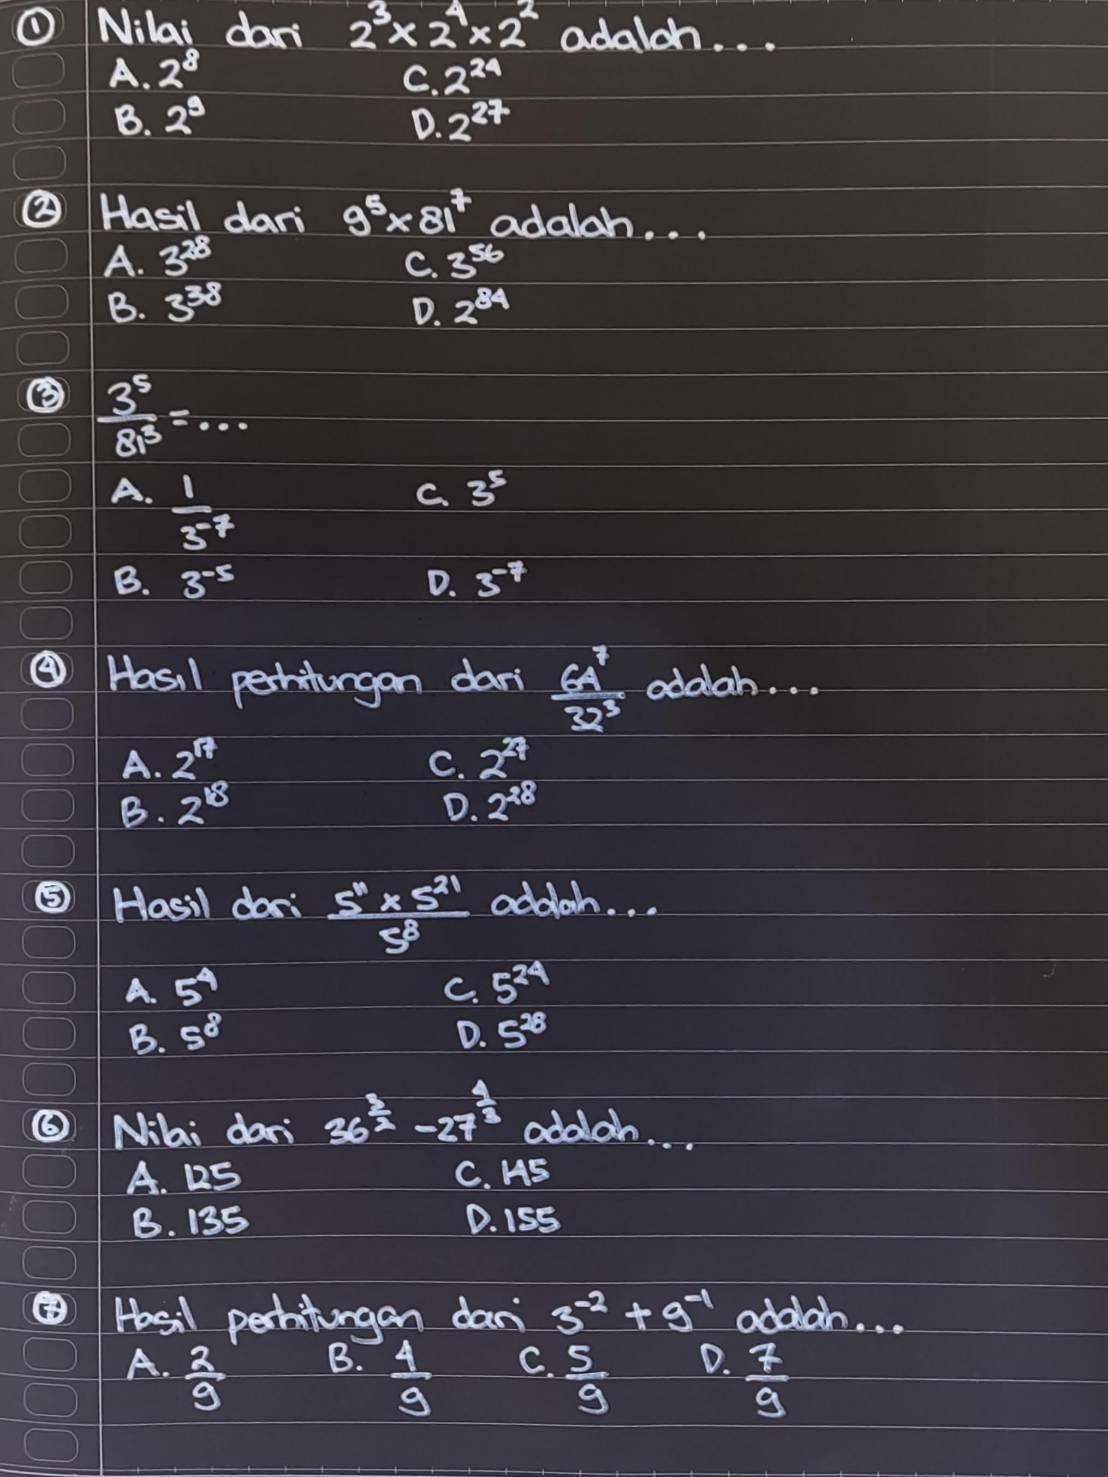 ① Nilai dari 2³×2⁴×2² adalah...
A. 2⁸ C. 2²⁴
B. 2⁹ D. 2²⁷
② Hasil dari 9⁵×81⁷ adalah...
A. 3²⁸ C. 3⁵⁶
B. 3³⁸ D. 2⁸⁴
③ 3⁵/81³ = ...
A. 1/3⁻⁷ C. 3⁵
B. 3⁻⁵ D. 3⁻⁷
④ Hasil perhitungan dari 64⁷/32³ adalah...
A. 2¹⁷ C. 2²⁷
B. 2¹⁸ D. 2²⁸
⑤ Hasil dari (5¹¹ × 5²¹)/5⁸ adalah...
A. 5⁴ C. 5²⁴
B. 5⁸ D. 5²⁸
⑥ Nilai dari 36^(3/2) - 27^(4/3) adalah...
A. 125 C. 145
B. 135 D. 155
⑦ Hasil perhitungan dari 3⁻² + 9⁻¹ adalah...
A. 2/9 B. 4/9 C. 5/9 D. 7/9